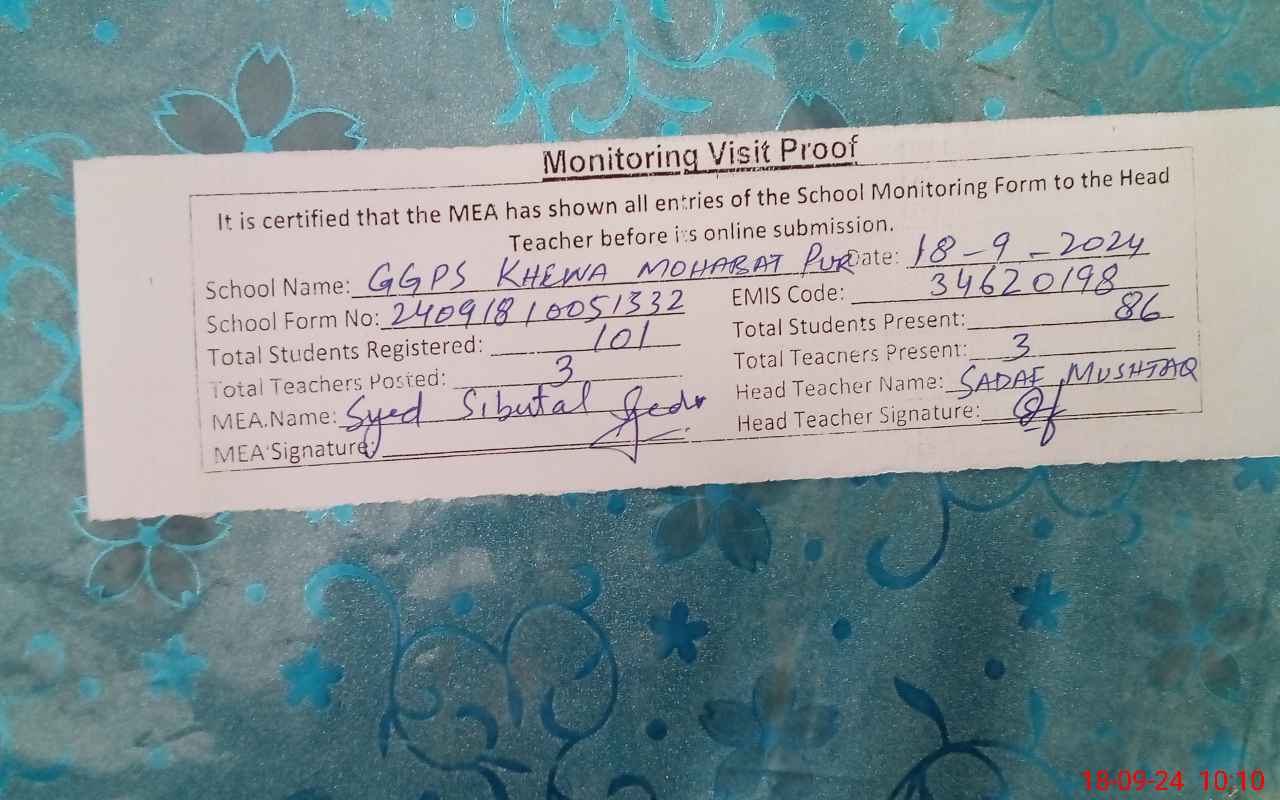 Monitoring Visit Proof
It is certified that the MEA has shown all entries of the School Monitoring Form to the Head
Teacher before its online submission.
School Name: GGPS KHEWA MOHABAT PUR Date: 18-9-2024
School Form No: 24091810051332 EMIS Code: 34620198
Total Students Registered: 101 Total Students Present: 86
Total Teachers Posted: 3 Total Teachers Present: 3
MEA Name: Syed Sibutal Head Teacher Name: SADAF MUSHTAQ
MEA Signature: Head Teacher Signature:
18-09-24 10:10